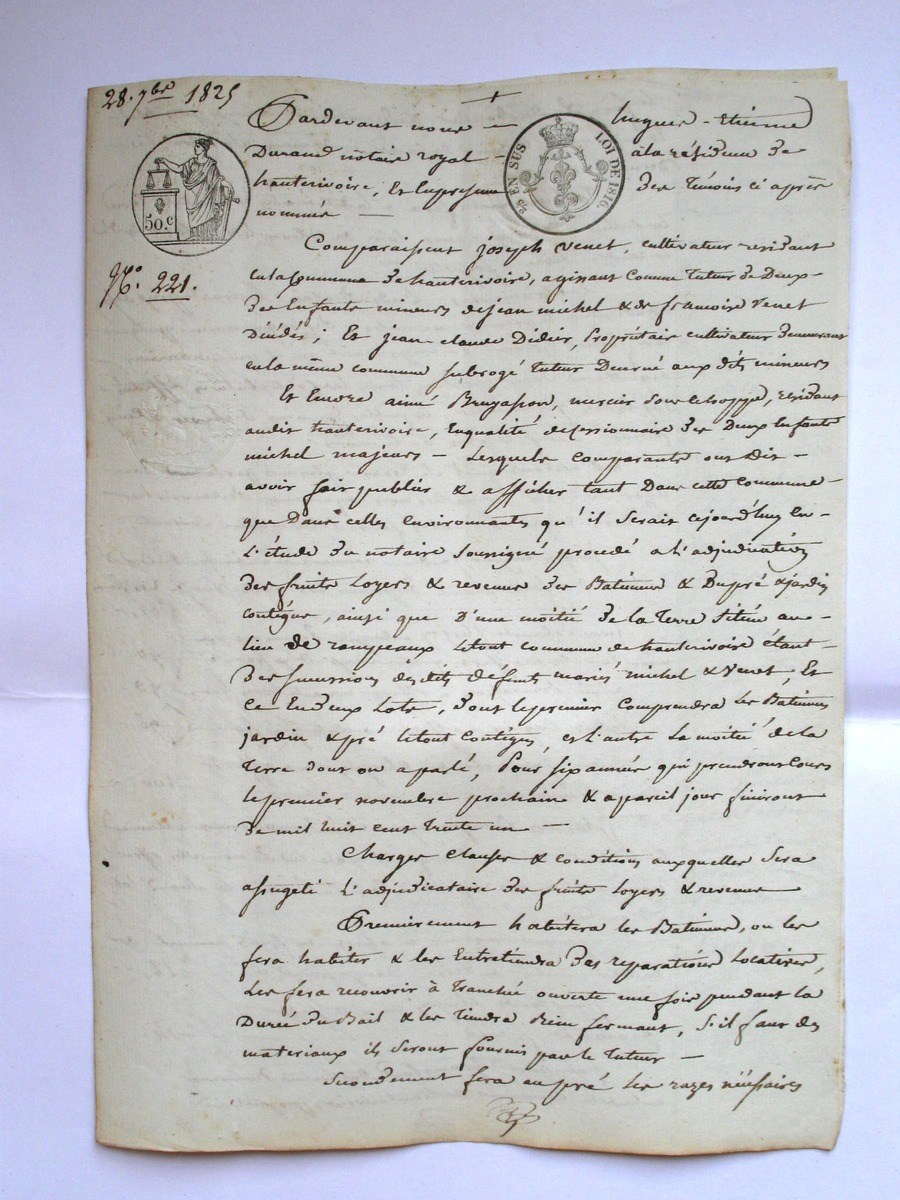 28. 7bre 1825
Pardevant nous — hugues - Etienne
Durand notaire royal - à la résidence de
hauterivoire, et En presence des Témoins ci après
nommés —
EN SUS LOI DE 1816.
50.c
No. 221.
Comparaissent joseph Venet, cultivateur residant
en la Commune de hauterivoire, agissant Comme Tuteur de Deux
des Enfants mineurs de jean michel & de francoise Venet
Décédés; Et jean-claude Didier, Propriétaire cultivateur Demeurant
en la même commune subrogé Tuteur Donné aux dits mineurs
Et Encore aimé Bruyasson, mercier résidant
audit hauterivoire, En qualité de Cessionnaire des Deux Enfants
michel majeurs — Lesquels comparants ont Dit -
avoir fait publier & afficher tant Dans cette Commune -
que Dans celles Environnantes qu'il serait cejourd'huy En -
L'étude du notaire soussigné procedé a L'adjudication
des fruits Loyers & revenus des Batiments & Du pré & jardin
contigus, ainsi que D'une moitié de la Terre située au -
lieu de rampeaux Le tout commune de hauterivoire étant -
Des successions des dits défunts mariés michel & Venet, Et
Ce En deux Lots, dont le premier Comprendra Les Batiments
jardin & pré le tout Contigus, et L'autre La moitié de la
Terre dont on a parlé, Pour six années qui prendront Cours
le premier novembre prochain & a pareil jour finiront
de mil huit cent Trente un —
Charges Clauses & conditions auxquelles Sera
assugeti L'adjudicataire des fruits Loyers & revenus
Premierement habitera les Batiments, ou les
fera habiter & les Entretiendra Des reparations Locatives,
Les fera recouvrir à Tranchée ouverte une fois pendant la
Durée du Bail & les Tiendra Bien fermant, s'il faut des
materiaux ils seront fournis par le Tuteur —
Secondement fera au pré les razes nécessaires